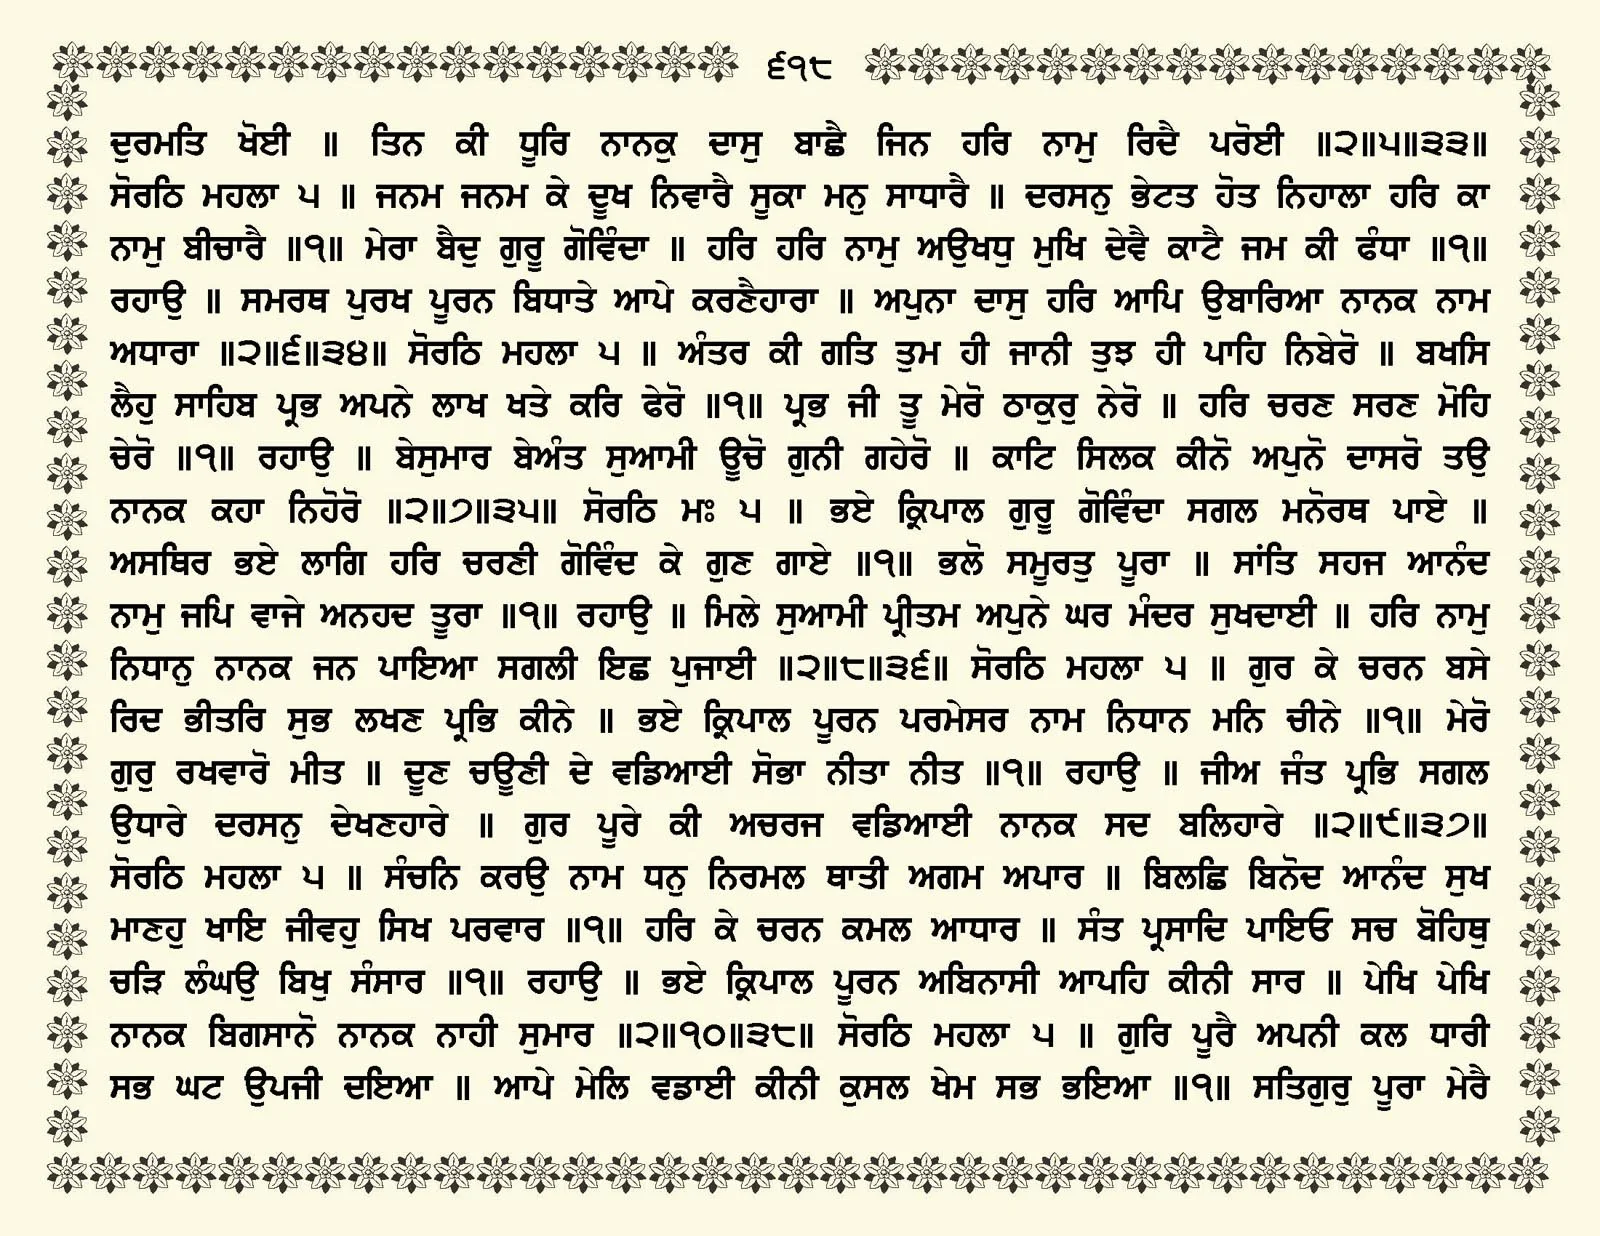 ੬੧੮
ਦੁਰਮਤਿ ਖੋਈ ॥ ਤਿਨ ਕੀ ਧੂਰਿ ਨਾਨਕੁ ਦਾਸੁ ਬਾਛੈ ਜਿਨ ਹਰਿ ਨਾਮੁ ਰਿਦੈ ਪਰੋਈ ॥੨॥੫॥੩੩॥
ਸੋਰਠਿ ਮਹਲਾ ੫ ॥ ਜਨਮ ਜਨਮ ਕੇ ਦੂਖ ਨਿਵਾਰੈ ਸੂਕਾ ਮਨੁ ਸਾਧਾਰੈ ॥ ਦਰਸਨੁ ਭੇਟਤ ਹੋਤ ਨਿਹਾਲਾ ਹਰਿ ਕਾ
ਨਾਮੁ ਬੀਚਾਰੈ ॥੧॥ ਮੇਰਾ ਬੈਦੁ ਗੁਰੂ ਗੋਵਿੰਦਾ ॥ ਹਰਿ ਹਰਿ ਨਾਮੁ ਅਉਖਧੁ ਮੁਖਿ ਦੇਵੈ ਕਾਟੈ ਜਮ ਕੀ ਫੰਧਾ ॥੧॥
ਰਹਾਉ ॥ ਸਮਰਥ ਪੁਰਖ ਪੂਰਨ ਬਿਧਾਤੇ ਆਪੇ ਕਰਣੈਹਾਰਾ ॥ ਅਪੁਨਾ ਦਾਸੁ ਹਰਿ ਆਪਿ ਉਬਾਰਿਆ ਨਾਨਕ ਨਾਮ
ਅਧਾਰਾ ॥੨॥੬॥੩੪॥ ਸੋਰਠਿ ਮਹਲਾ ੫ ॥ ਅੰਤਰ ਕੀ ਗਤਿ ਤੁਮ ਹੀ ਜਾਨੀ ਤੁਝ ਹੀ ਪਾਹਿ ਨਿਬੇਰੋ ॥ ਬਖਸਿ
ਲੈਹੁ ਸਾਹਿਬ ਪ੍ਰਭ ਅਪਨੇ ਲਾਖ ਖਤੇ ਕਰਿ ਫੇਰੋ ॥੧॥ ਪ੍ਰਭ ਜੀ ਤੂ ਮੇਰੋ ਠਾਕੁਰੁ ਨੇਰੋ ॥ ਹਰਿ ਚਰਣ ਸਰਣ ਮੋਹਿ
ਚੇਰੋ ॥੧॥ ਰਹਾਉ ॥ ਬੇਸੁਮਾਰ ਬੇਅੰਤ ਸੁਆਮੀ ਊਚੋ ਗੁਨੀ ਗਹੇਰੋ ॥ ਕਾਟਿ ਸਿਲਕ ਕੀਨੋ ਅਪੁਨੋ ਦਾਸਰੋ ਤਉ
ਨਾਨਕ ਕਹਾ ਨਿਹੋਰੋ ॥੨॥੭॥੩੫॥ ਸੋਰਠਿ ਮਃ ੫ ॥ ਭਏ ਕ੍ਰਿਪਾਲ ਗੁਰੂ ਗੋਵਿੰਦਾ ਸਗਲ ਮਨੋਰਥ ਪਾਏ ॥
ਅਸਥਿਰ ਭਏ ਲਾਗਿ ਹਰਿ ਚਰਣੀ ਗੋਵਿੰਦ ਕੇ ਗੁਣ ਗਾਏ ॥੧॥ ਭਲੋ ਸਮੂਰਤੁ ਪੂਰਾ ॥ ਸਾਂਤਿ ਸਹਜ ਆਨੰਦ
ਨਾਮੁ ਜਪਿ ਵਾਜੇ ਅਨਹਦ ਤੂਰਾ ॥੧॥ ਰਹਾਉ ॥ ਮਿਲੇ ਸੁਆਮੀ ਪ੍ਰੀਤਮ ਅਪੁਨੇ ਘਰ ਮੰਦਰ ਸੁਖਦਾਈ ॥ ਹਰਿ ਨਾਮੁ
ਨਿਧਾਨੁ ਨਾਨਕ ਜਨ ਪਾਇਆ ਸਗਲੀ ਇਛ ਪੁਜਾਈ ॥੨॥੮॥੩੬॥ ਸੋਰਠਿ ਮਹਲਾ ੫ ॥ ਗੁਰ ਕੇ ਚਰਨ ਬਸੇ
ਰਿਦ ਭੀਤਰਿ ਸੁਭ ਲਖਣ ਪ੍ਰਭਿ ਕੀਨੇ ॥ ਭਏ ਕ੍ਰਿਪਾਲ ਪੂਰਨ ਪਰਮੇਸਰ ਨਾਮ ਨਿਧਾਨ ਮਨਿ ਚੀਨੇ ॥੧॥ ਮੇਰੋ
ਗੁਰੁ ਰਖਵਾਰੋ ਮੀਤ ॥ ਦੂਣ ਚਊਣੀ ਦੇ ਵਡਿਆਈ ਸੋਭਾ ਨੀਤਾ ਨੀਤ ॥੧॥ ਰਹਾਉ ॥ ਜੀਅ ਜੰਤ ਪ੍ਰਭਿ ਸਗਲ
ਉਧਾਰੇ ਦਰਸਨੁ ਦੇਖਣਹਾਰੇ ॥ ਗੁਰ ਪੂਰੇ ਕੀ ਅਚਰਜ ਵਡਿਆਈ ਨਾਨਕ ਸਦ ਬਲਿਹਾਰੇ ॥੨॥੯॥੩੭॥
ਸੋਰਠਿ ਮਹਲਾ ੫ ॥ ਸੰਚਨਿ ਕਰਉ ਨਾਮ ਧਨੁ ਨਿਰਮਲ ਥਾਤੀ ਅਗਮ ਅਪਾਰ ॥ ਬਿਲਛਿ ਬਿਨੋਦ ਆਨੰਦ ਸੁਖ
ਮਾਣਹੁ ਖਾਇ ਜੀਵਹੁ ਸਿਖ ਪਰਵਾਰ ॥੧॥ ਹਰਿ ਕੇ ਚਰਨ ਕਮਲ ਆਧਾਰ ॥ ਸੰਤ ਪ੍ਰਸਾਦਿ ਪਾਇਓ ਸਚ ਬੋਹਿਥੁ
ਚੜਿ ਲੰਘਉ ਬਿਖੁ ਸੰਸਾਰ ॥੧॥ ਰਹਾਉ ॥ ਭਏ ਕ੍ਰਿਪਾਲ ਪੂਰਨ ਅਬਿਨਾਸੀ ਆਪਹਿ ਕੀਨੀ ਸਾਰ ॥ ਪੇਖਿ ਪੇਖਿ
ਨਾਨਕ ਬਿਗਸਾਨੋ ਨਾਨਕ ਨਾਹੀ ਸੁਮਾਰ ॥੨॥੧੦॥੩੮॥ ਸੋਰਠਿ ਮਹਲਾ ੫ ॥ ਗੁਰਿ ਪੂਰੈ ਅਪਨੀ ਕਲ ਧਾਰੀ
ਸਭ ਘਟ ਉਪਜੀ ਦਇਆ ॥ ਆਪੇ ਮੇਲਿ ਵਡਾਈ ਕੀਨੀ ਕੁਸਲ ਖੇਮ ਸਭ ਭਇਆ ॥੧॥ ਸਤਿਗੁਰੁ ਪੂਰਾ ਮੇਰੈ